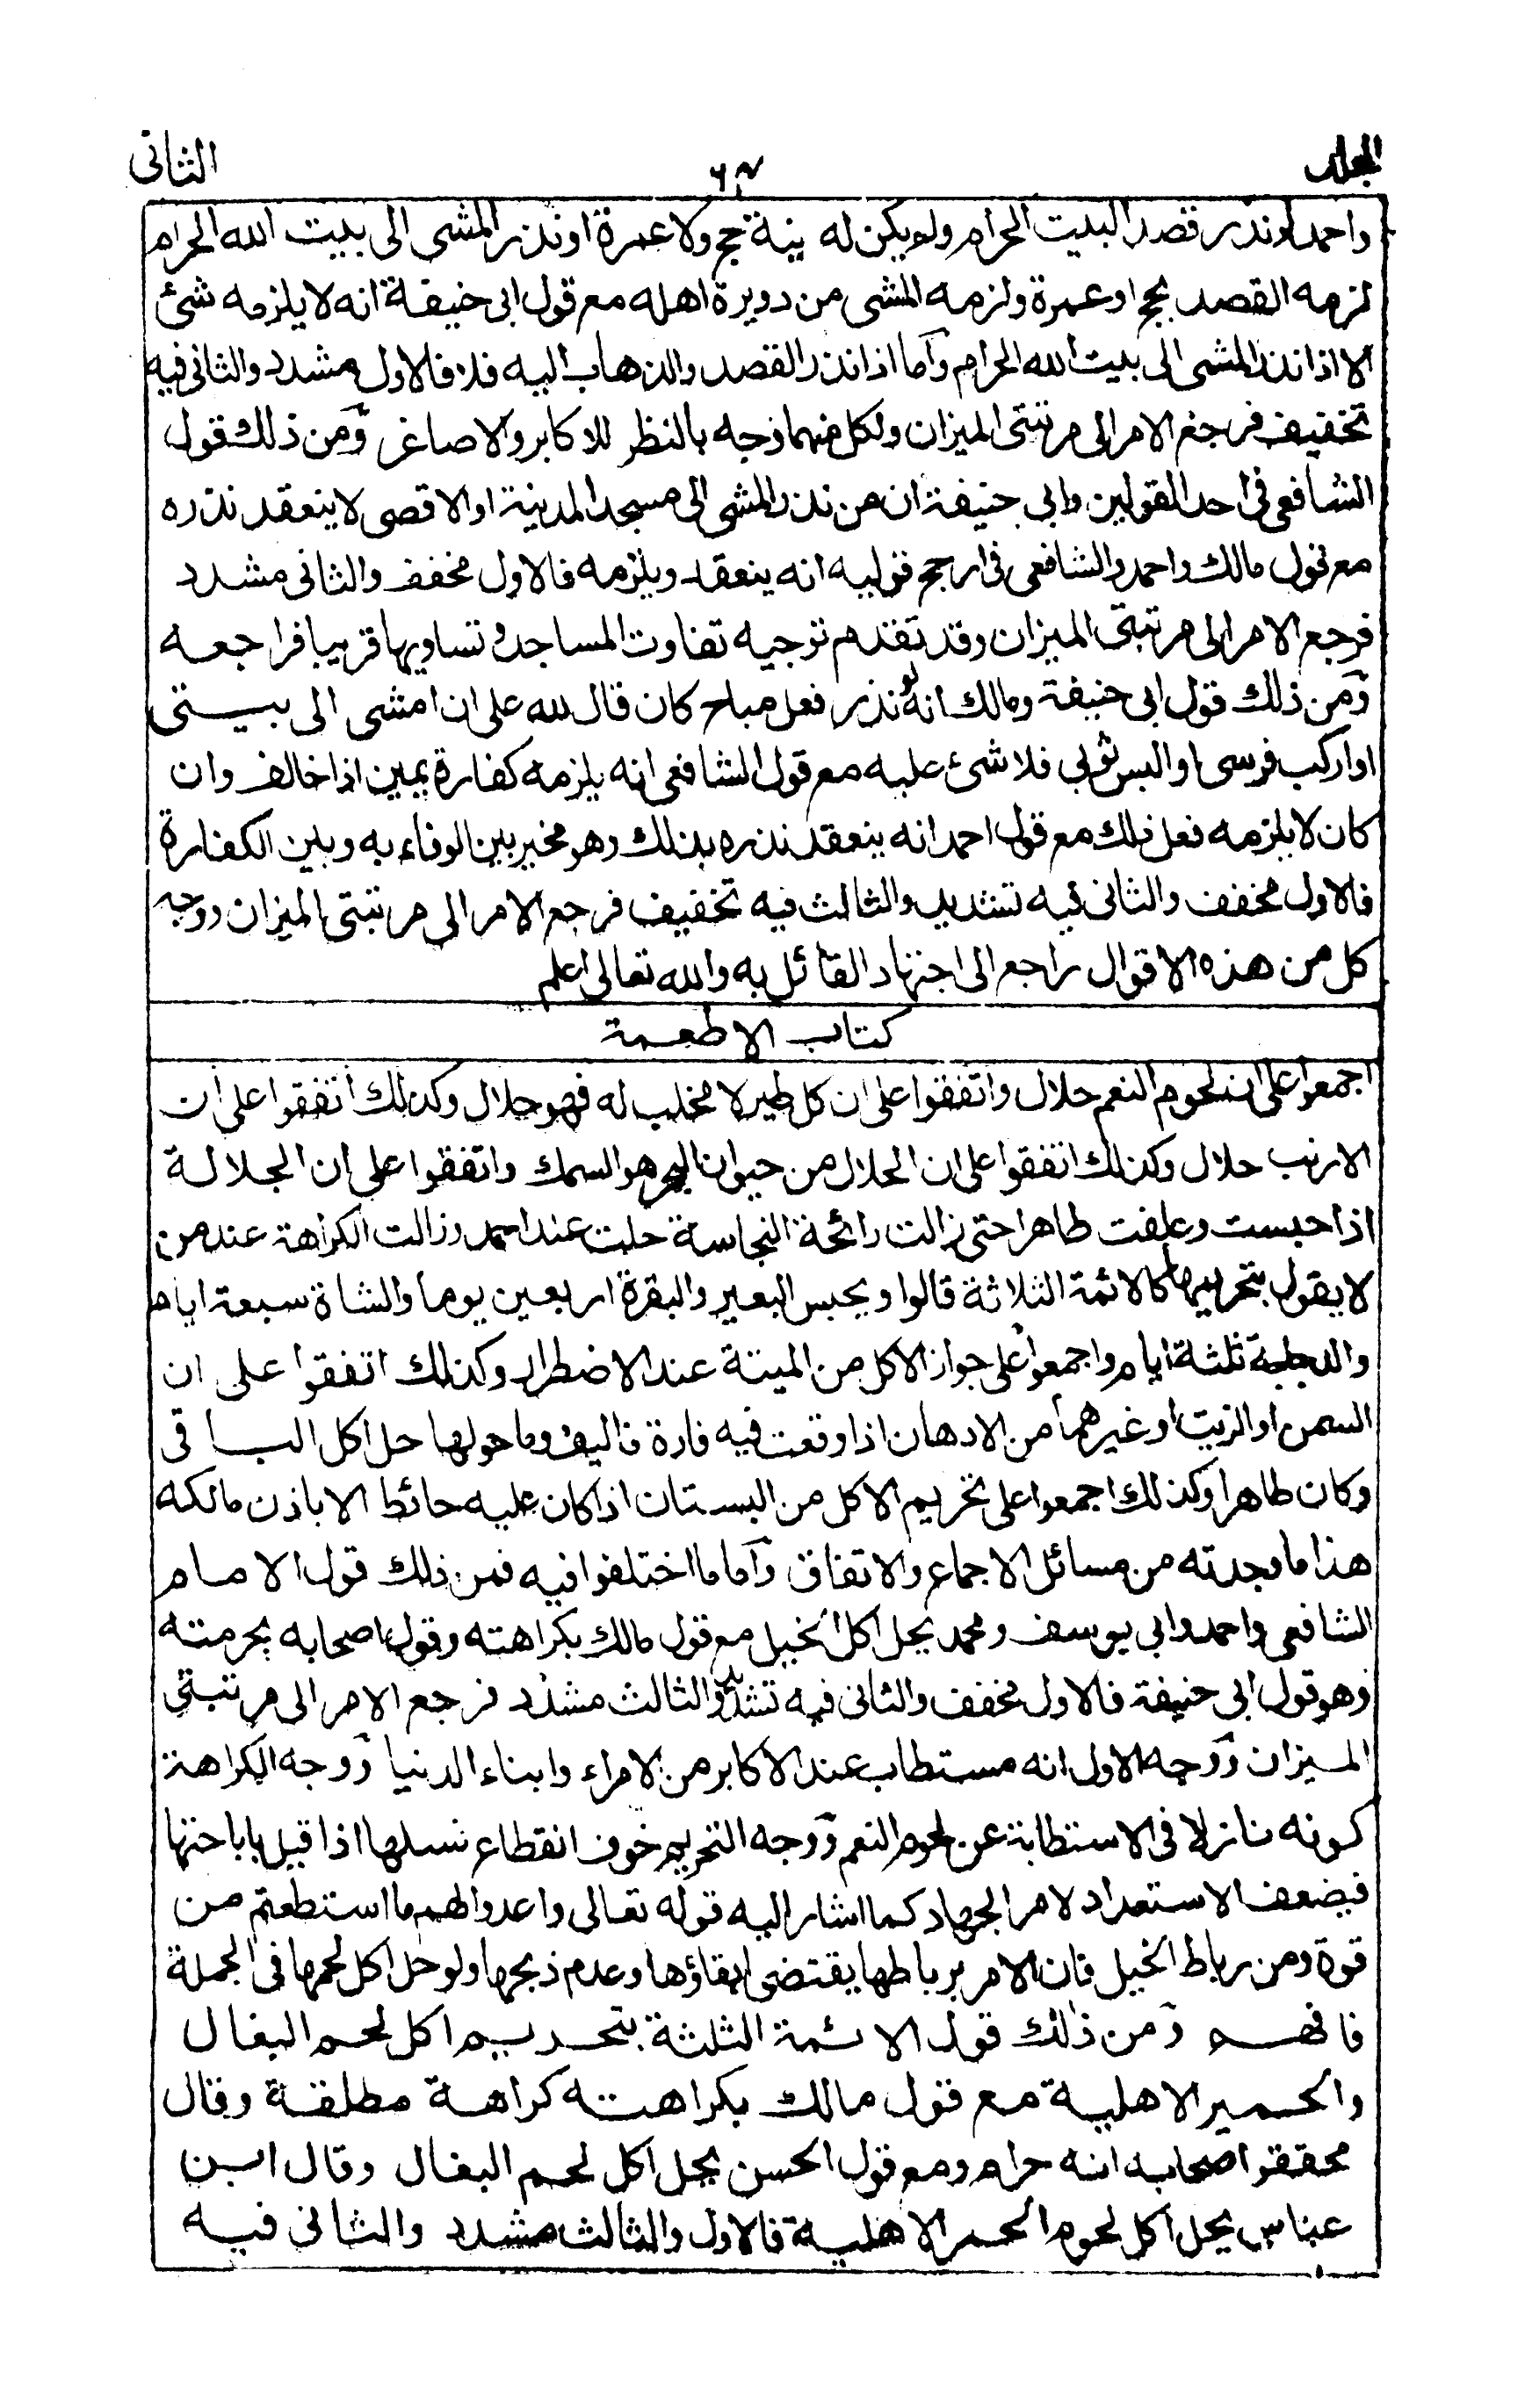 المجلد ٦٣ الثانى
واحمد لو نذر قصد البيت الحرام ولم يكن له نية حج ولا عمرة او نذر المشى الى بيت الله الحرام
لزمه القصد بحج او عمرة ولزمه المشى من دويرة اهله مع قول ابى حنيفة انه لا يلزمه شئ
الا اذا نذر المشى الى بيت الله الحرام وآما اذا نذر القصد والذهاب اليه فلا فالاول مشدد والثانى فيه
تخفيف فرجع الامر الى مرتبتى الميزان ولكل منهما وجه بالنظر للاكابر والاصاغر وَمن ذلك قول
الشافعى فى احد القولين وابى حنيفة ان من نذر المشى الى مسجد المدينة او الاقصى لا ينعقد نذره
مع قول مالك واحمد والشافعى فى ارجح قوليه انه ينعقد ويلزمه فالاول مخفف والثانى مشدد
فرجع الامر الى مرتبتى الميزان وقد تقدم توجيه تفاوت المساجد وتساويها قريبا فراجعه
وَمن ذلك قول ابى حنيفة ومالك انه لو نذر فعل مباح كان قال لله على ان امشى الى بيتى
او اركب فرسى او البس ثوبى فلا شئ عليه مع قول الشافعى انه يلزمه كفارة يمين اذا خالف وان
كان لا يلزمه فعل ذلك مع قول احمد انه ينعقد نذره بذلك وهو مخير بين الوفاء به وبين الكفارة
فالاول مخفف والثانى فيه تشديد والثالث فيه تخفيف فرجع الامر الى مرتبتى الميزان ووجه
كل من هذه الاقوال راجع الى اجتهاد القائل به والله تعالى اعلم
كتاب الاطعمة
اجمعوا على ان لحوم النعم حلال واتفقوا على ان كل طير لا مخلب له فهو حلال وكذلك اتفقوا على ان
الارنب حلال وكذلك اتفقوا على ان الحلال من حيوان البحر هو السمك واتفقوا على ان الجلالة
اذا حبست وعلفت طاهرا حتى زالت رائحة النجاسة حلت عند احمد وزالت الكراهة عند من
لا يقول بتحريمها كالائمة الثلاثة قالوا ويحبس البعير والبقرة اربعين يوما والشاة سبعة ايام
والدجاجة ثلثة ايام واجمعوا على جواز الاكل من الميتة عند الاضطرار وكذلك اتفقوا على ان
السمن او الزيت او غيرهما من الادهان اذا وقعت فيه فارة فاليف وما حولها حل اكل الباقى
وكان طاهرا وكذلك اجمعوا على تحريم الاكل من البستان اذا كان عليه حائط الا باذن مالكه
هذا ما وجدته من مسائل الاجماع والاتفاق وَآما ما اختلفوا فيه فمن ذلك قول الامام
الشافعى واحمد وابى يوسف ومحمد بحل اكل الخيل مع قول مالك بكراهته وقول اصحابه بحرمته
وهو قول ابى حنيفة فالاول مخفف والثانى فيه تشديد والثالث مشدد فرجع الامر الى مرتبتى
الميزان وَوجه الاول انه مستطاب عند الاكابر من الامراء وابناء الدنيا وَوجه الكراهة
كونه نازلا فى الاستطابة عن لحوم النعم وَوجه التحريم خوف انقطاع نسلها اذا قيل باباحتها
فيضعف الاستعداد لامر الجهاد كما اشار اليه قوله تعالى واعدوا لهم ما استطعتم من
قوة ومن رباط الخيل فان الامر برباطها يقتضى ابقاؤها وعدم ذبحها ولو حل اكل لحمها فى الجملة
فافهم وَمن ذلك قول الائمة الثلثة بتحريم اكل لحم البغال
والحمير الاهلية مع قول مالك بكراهته كراهة مطلقة وقال
محققوا اصحابه انه حرام ومع قول الحسن بحل اكل لحم البغال وقال ابن
عباس يحل اكل لحوم الحمر الاهلية فالاول والثالث مشدد والثانى فيه